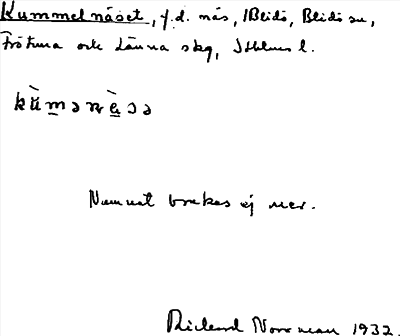 Kummelnäset, f.d. näs, i Blidö, Blidö sn,
Frötuna och Länna skg, Sthlms l.
Namnet brukas ej mer.
Rickard Norrman 1932.